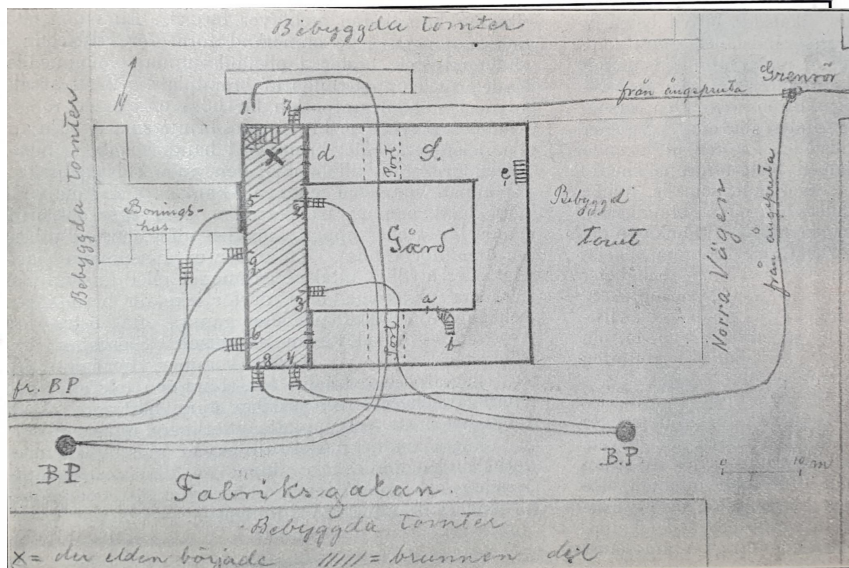 Bebyggda tomter
Grenrör
från ångspruta
N
1.
7
Bebyggda tomter
X
d
Port
S.
e
5
Bonings-
hus
2
Gård
Bebyggd
tomt
Norra Vägen
från ångspruta
9
3
a
b
6
Port
8
4
fr. BP
BP
B.P
0 10 m
Fabriksgatan.
Bebyggda tomter
X = der elden började ///// = brunnen del